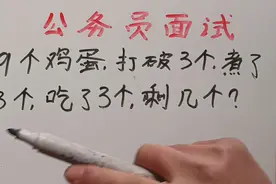 公务员面试
9个鸡蛋,打破3个,煮了
3个,吃了3个,剩几个?